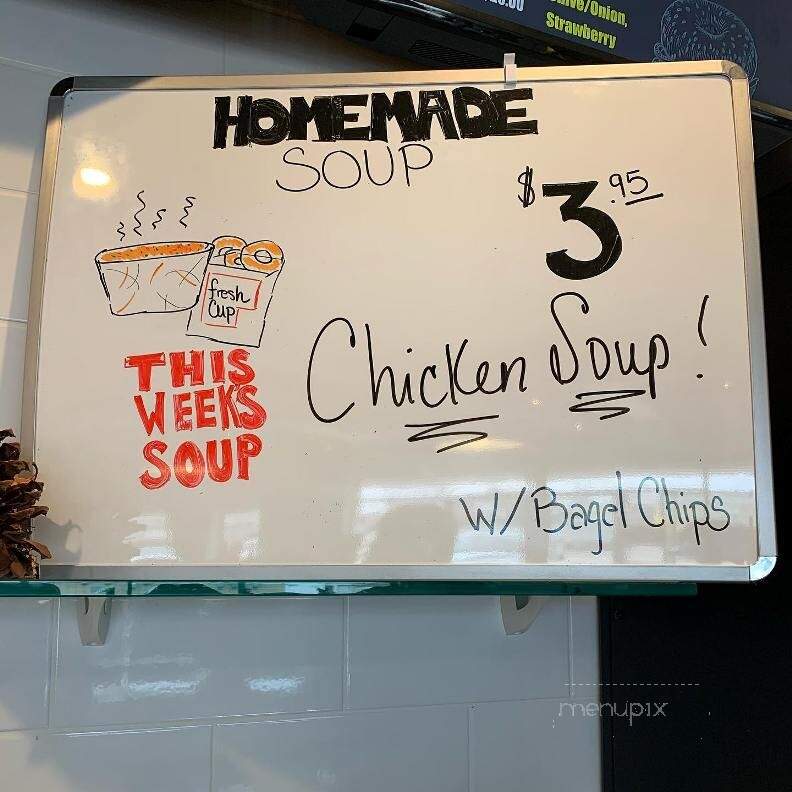 Strawberry
HOMEMADE
SOUP
$3.95
fresh
Cup
THIS
WEEKS
SOUP
Chicken Soup!
W/ Bagel Chips
menupix